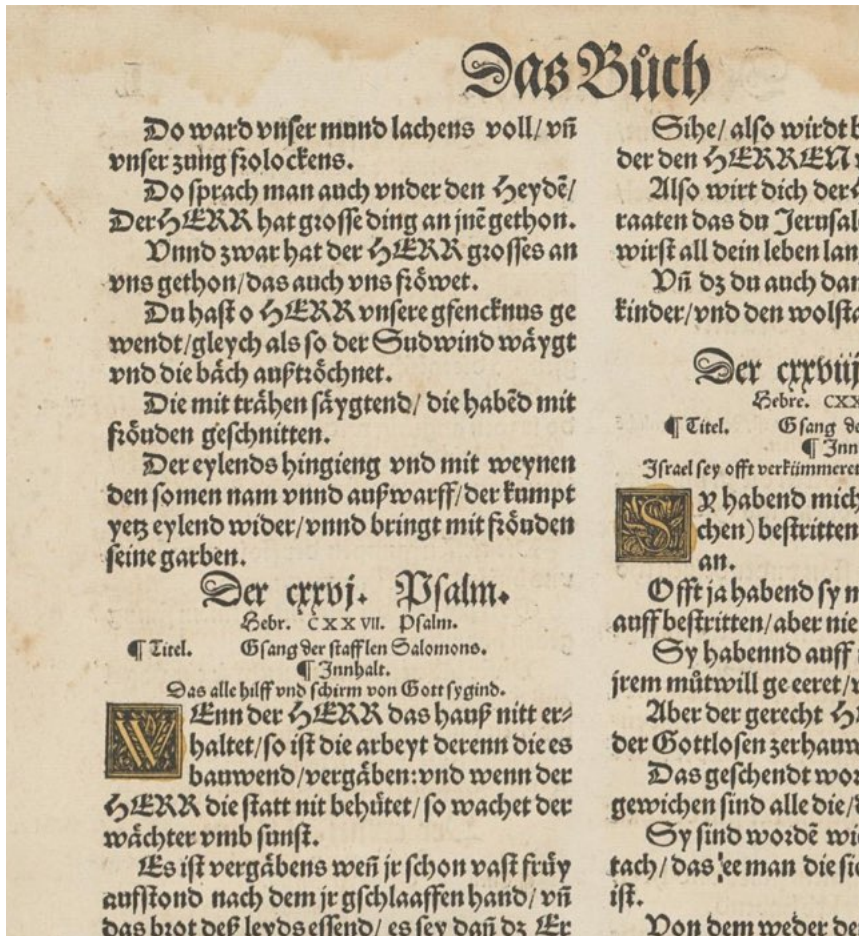 Das Bůch
Do ward vnser mund lachens voll/ vñ
vnser zung frolockens.
Do sprach man auch vnder den Heydẽ/
Der HERR hat grosse ding an jnẽ gethon.
Vnnd zwar hat der HERR grosses an
vns gethon/das auch vns fröwet.
Du hast o HERR vnsere gfencknus ge
wendt/gleych als so der Sudwind wäygt
vnd die bäch außtröchnet.
Die mit trähen säygtend/ die habẽd mit
fröuden geschnitten.
Der eylends hingieng vnd mit weynen
den somen nam vnnd außwarff/der kumpt
yetz eylend wider/vnnd bringt mit fröuden
seine garben.
Der cxxvj. Psalm.
Hebr. CXXVII. Psalm.
¶ Titel. Gsang der stafflen Salomons.
¶ Innhalt.
Das alle hilff vnd schirm von Gott sygind.
WEnn der HERR das hauß nitt er⸗
haltet/so ist die arbeyt derenn die es
bauwend/vergäben:vnd wenn der
HERR die statt nit behütet/so wachet der
wächter vmb sunst.
Es ist vergäbens weñ jr schon vast früy
aufstond nach dem jr gschlaaffen hand/ vñ
das brot deß leyds essend/ es sey dañ dz Er
Sihe/ also wirdt
der den HERREN
Also wirt dich der
raaten das du Jerusal
wirst all dein leben lan
Vñ dz du auch dar
kinder/vnd den wolsta
Der cxxviij
Hebre. CXX
¶ Titel. Gsang de
¶ Inn
Israel sey offt verkümmeret
SY habend mich
chen) bestritten
an.
Offt ja habend sy m
auff bestritten/aber nie
Sy habennd auff
jrem můtwill ge eeret/
Aber der gerecht
der Gottlosen zerhauw
Das geschendt wor
gewichen sind alle die/
Sy sind wordẽ wi
tach/ das ee man die sic
ist.
Von dem weder de